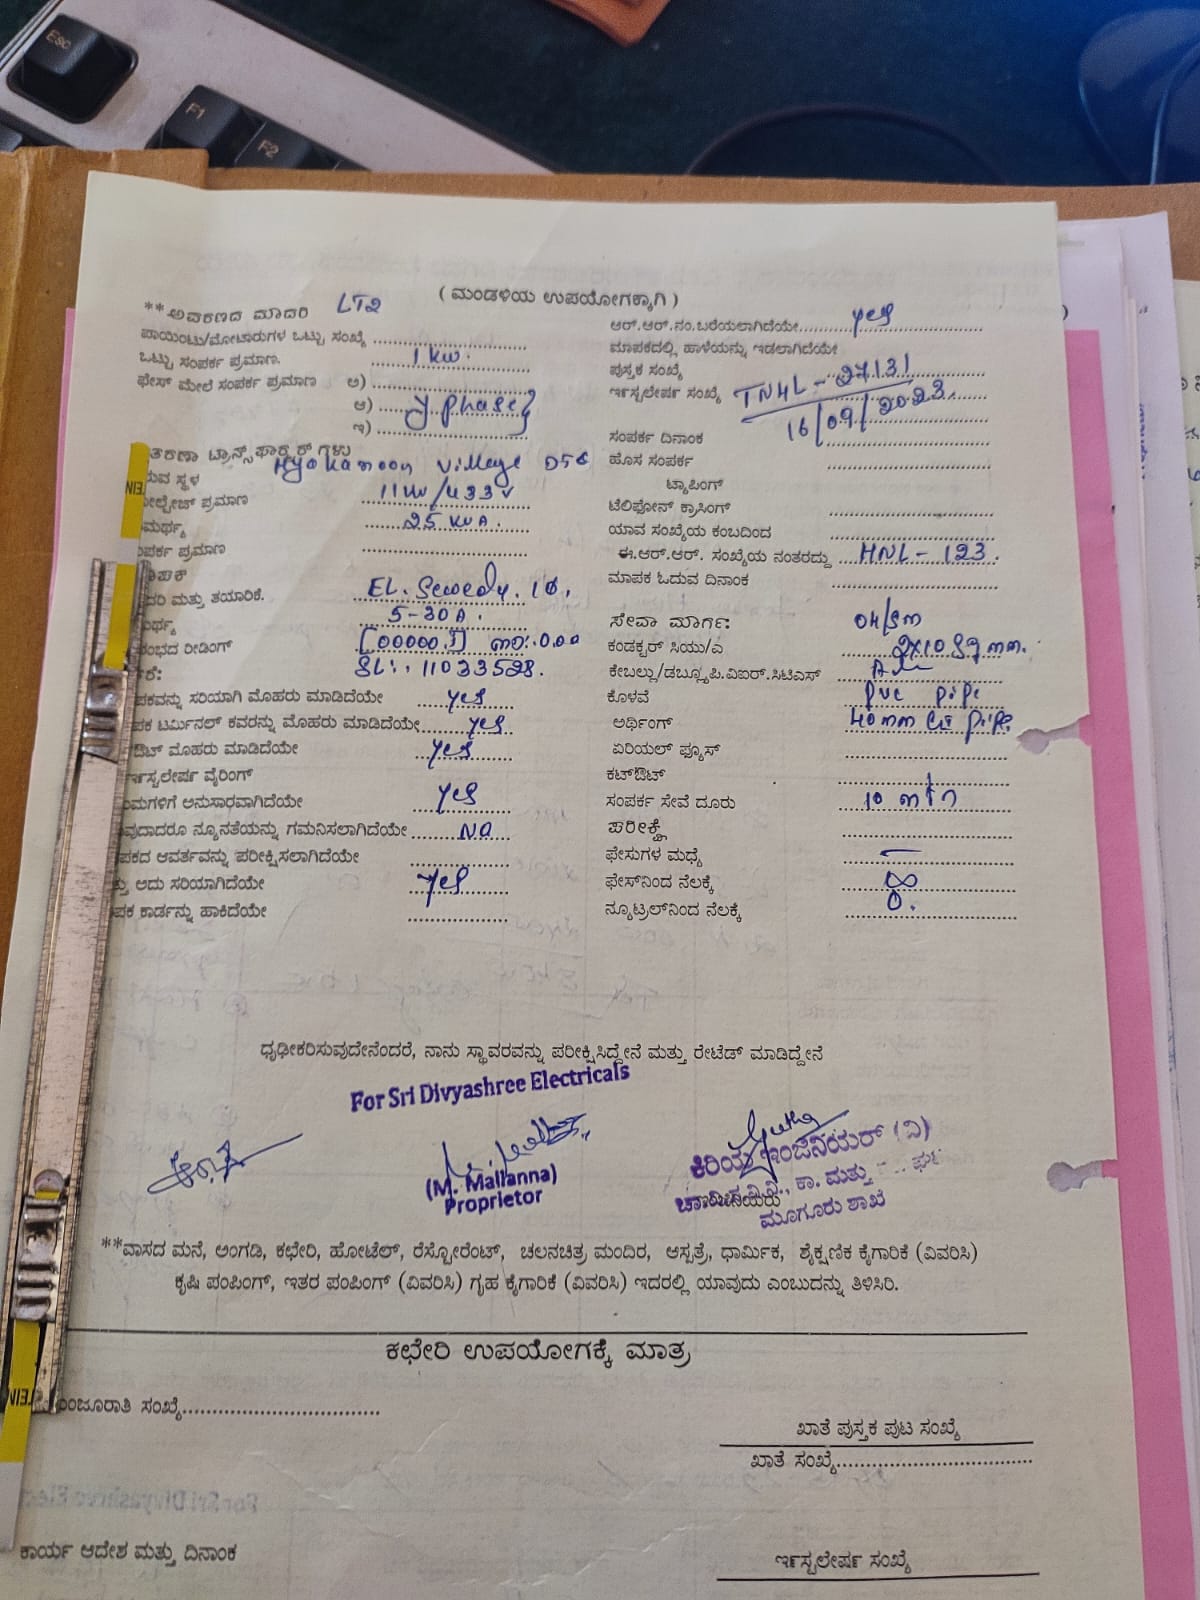 Esc
F1
F2
( ಮಂಡಳಿಯ ಉಪಯೋಗಕ್ಕಾಗಿ )
**ಆವರಣದ ಮಾದರಿ LT2
ಪಾಯಿಂಟು/ಮೋಟಾರುಗಳ ಒಟ್ಟು ಸಂಖ್ಯೆ
ಒಟ್ಟು ಸಂಪರ್ಕ ಪ್ರಮಾಣ. 1 kw.
ಫೇಸ್ ಮೇಲೆ ಸಂಪರ್ಕ ಪ್ರಮಾಣ ಅ)
ಆ) y phase
ಇ)
ತರಣಾ ಟ್ರಾನ್ಸ್‌ಫಾರ್ಮರ್‌ಗಳು
ರುವ ಸ್ಥಳ village
ೋಲ್ಟೇಜ್ ಪ್ರಮಾಣ 11kv/433v
ಮರ್ಥ್ಯ 25 KVA.
ಂಪರ್ಕ ಪ್ರಮಾಣ
ಾಪಕ
ದರಿ ಮತ್ತು ತಯಾರಿಕೆ. EL. Sewedy. 1Φ,
ರ್ಥ್ಯ 5-30A.
ಂಭದ ರೀಡಿಂಗ್
ರೆ: SL:. 11033528.
ಪಕವನ್ನು ಸರಿಯಾಗಿ ಮೊಹರು ಮಾಡಿದೆಯೇ yes
ಪಕ ಟರ್ಮಿನಲ್ ಕವರನ್ನು ಮೊಹರು ಮಾಡಿದೆಯೇ yes
ಔಟ್ ಮೊಹರು ಮಾಡಿದೆಯೇ yes
ಇನ್ಸ್ಟಲೇಷನ್ ವೈರಿಂಗ್
ಯಮಗಳಿಗೆ ಅನುಸಾರವಾಗಿದೆಯೇ yes
ವುದಾದರೂ ನ್ಯೂನತೆಯನ್ನು ಗಮನಿಸಲಾಗಿದೆಯೇ NO
ಪಕದ ಆವರ್ತವನ್ನು ಪರೀಕ್ಷಿಸಲಾಗಿದೆಯೇ
ತ್ತು ಅದು ಸರಿಯಾಗಿದೆಯೇ yes
ಪಕ ಕಾರ್ಡನ್ನು ಹಾಕಿದೆಯೇ
ಆರ್.ಆರ್.ನಂ.ಬರೆಯಲಾಗಿದೆಯೇ yes
ಮಾಪಕದಲ್ಲಿ ಹಾಳೆಯನ್ನು ಇಡಲಾಗಿದೆಯೇ
ಪುಸ್ತಕ ಸಂಖ್ಯೆ
ಇನ್ಸ್ಟಲೇಷನ್ ಸಂಖ್ಯೆ TNHL-27131
16/09/2023.
ಸಂಪರ್ಕ ದಿನಾಂಕ
ಹೊಸ ಸಂಪರ್ಕ
ಟ್ಯಾಪಿಂಗ್
ಟೆಲಿಫೋನ್ ಕ್ರಾಸಿಂಗ್
ಯಾವ ಸಂಖ್ಯೆಯ ಕಂಬದಿಂದ
ಈ.ಆರ್.ಆರ್. ಸಂಖ್ಯೆಯ ನಂತರದ್ದು HNL-123.
ಮಾಪಕ ಓದುವ ದಿನಾಂಕ
ಸೇವಾ ಮಾರ್ಗ:
ಕಂಡಕ್ಟರ್ ಸಿಯು/ಎ
ಕೇಬಲ್ಲು/ಡಬ್ಲ್ಯೂ.ಪಿ.ವಿಐಆರ್.ಸಿಟಿಎಸ್
ಕೊಳವೆ pvc pipe
ಅರ್ಥಿಂಗ್ 40mm GI pipe.
ಏರಿಯಲ್ ಫ್ಯೂಸ್
ಕಟ್‌ಔಟ್
ಸಂಪರ್ಕ ಸೇವೆ ದೂರು
ಪರೀಕ್ಷೆ
ಫೇಸುಗಳ ಮಧ್ಯೆ –
ಫೇಸ್‌ನಿಂದ ನೆಲಕ್ಕೆ ∞
ನ್ಯೂಟ್ರಲ್‌ನಿಂದ ನೆಲಕ್ಕೆ 0.
ಧೃಢೀಕರಿಸುವುದೇನೆಂದರೆ, ನಾನು ಸ್ಥಾವರವನ್ನು ಪರೀಕ್ಷಿಸಿದ್ದೇನೆ ಮತ್ತು ರೇಟೆಡ್ ಮಾಡಿದ್ದೇನೆ
For Sri Divyashree Electricals
(M. Mallanna)
Proprietor
ಕಿರಿಯ ಇಂಜಿನಿಯರ್ (ವಿ)
ಕಾ. ಮತ್ತು
ಮೂಗೂರು ಶಾಖೆ
**ವಾಸದ ಮನೆ, ಅಂಗಡಿ, ಕಛೇರಿ, ಹೋಟೆಲ್, ರೆಸ್ಟೋರೆಂಟ್, ಚಲನಚಿತ್ರ ಮಂದಿರ, ಆಸ್ಪತ್ರೆ, ಧಾರ್ಮಿಕ, ಶೈಕ್ಷಣಿಕ ಕೈಗಾರಿಕೆ (ವಿವರಿಸಿ)
ಕೃಷಿ ಪಂಪಿಂಗ್, ಇತರ ಪಂಪಿಂಗ್ (ವಿವರಿಸಿ) ಗೃಹ ಕೈಗಾರಿಕೆ (ವಿವರಿಸಿ) ಇದರಲ್ಲಿ ಯಾವುದು ಎಂಬುದನ್ನು ತಿಳಿಸಿರಿ.
ಕಛೇರಿ ಉಪಯೋಗಕ್ಕೆ ಮಾತ್ರ
ಂಜೂರಾತಿ ಸಂಖ್ಯೆ
ಖಾತೆ ಪುಸ್ತಕ ಪುಟ ಸಂಖ್ಯೆ
ಖಾತೆ ಸಂಖ್ಯೆ
ಕಾರ್ಯ ಆದೇಶ ಮತ್ತು ದಿನಾಂಕ
ಇನ್ಸ್ಟಲೇಷನ್ ಸಂಖ್ಯೆ